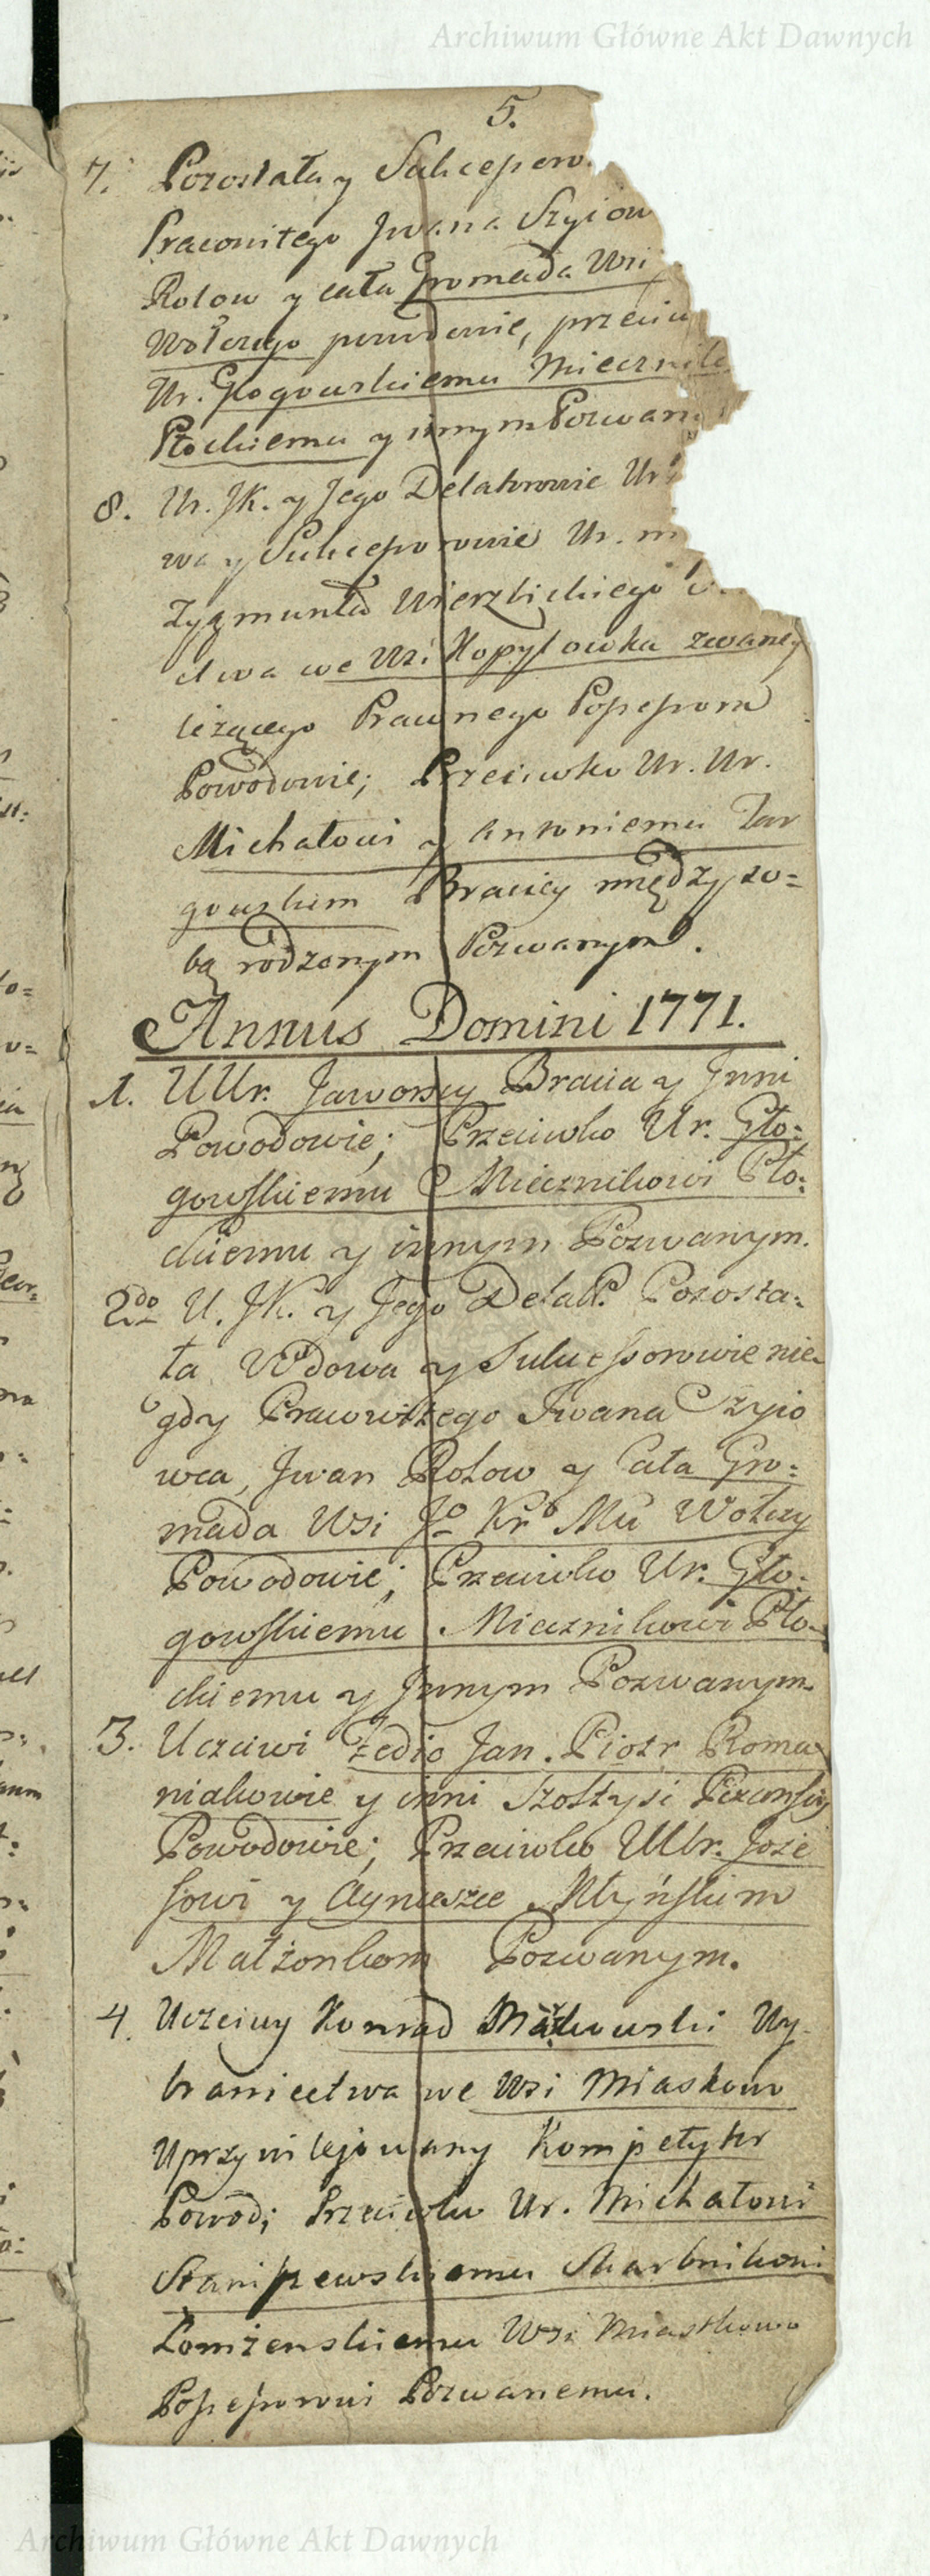 Archiwum Główne Akt Dawnych
5.
7. Pozostała y Sukcessorow
Pracowitego Jwana Szyiow
Rotow y cała Gromada Wsi
Wołczego powodowie, przeciw
Ur. Głogowskiemu Miecznik
Płockiemu y innym Pozwan
8. Ur. JK. y Jego Delatorowie Ur
wa y Sukcessorowie Ur. m
Zygmunta Wierzbickiego
dwa we Wsi Kopytowka zwaney
leżącego Prawnego Possessora
Powodowie; Przeciwko Ur. Ur.
Michałowi y Antoniemu Zar
gowskim Braciey między so=
bą rodzonym Pozwanym.
Annus Domini 1771.
1. UUr. Jaworscy Bracia y Jnni
Powodowie; Przeciwko Ur. Gło=
gowskiemu Miecznikowi Pło=
ckiemu y innym Pozwanym.
2do U. JK. y Jego Delat. Pozosta=
ła Wdowa y Sukcessorowie nie
gdy Pracowitego Jwana Szyio
wca, Jwan Rotow y Cała Gro=
mada Wsi Jo Kro Mci Wołczy
Powodowie; Przeciwko Ur. Gło=
gowskiemu Miecznikowi Pło-
ckiemu y Jnnym Pozwanym.
3. Uczciwi Jan. Piotr Roma
niakowie y inni Szołtysi
Powodowie; Przeciwko UUr. Joze
fowi y Agnieszce Młyńskim
Małżonkom Pozwanym.
4. Uczciwy Konrad Makowski Wy-
braniectwa we Wsi Miaskow
Uprzywilejowany Kompetytor
Powod; Przeciwko Ur. Michałowi
Staniszewskiemu Skarbnikowi
Łomżenskiemu Wsi Miastkowo
Possessorowi Pozwanemu.
Archiwum Główne Akt Dawnych